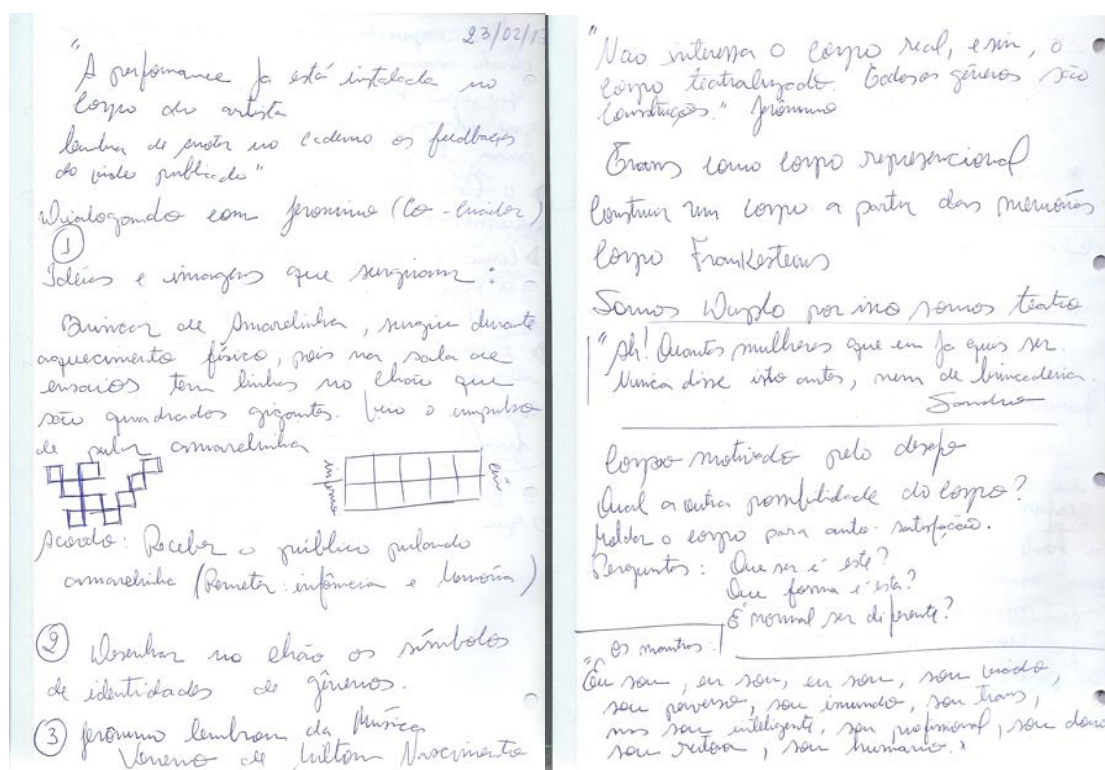 23/02/1
"A perfomance ja está instalada no
Corpo do artista
lembrar de anotar no caderno os feedbacks
do video publicado"
Dialogando com Jeronimo (Co-criador)
1
Ideias e imagens que surgiram:
Brincar de Amarelinha, surgiu durante
aquecimento físico, pois na sala de
ensaios tem linhas no chão que
são quadrados gigantes. Veio o impulso
de pular amarelinha
inferno
céu
Acordo: Receber o público pulando
amarelinha (Remeter: infância e Memória)
2 Desenhar no chão os símbolos
de identidades de gêneros.
3 Jeronimo lembrou da Música
Veneno de Milton Nascimento
"Não interessa o corpo real, e sim, o
corpo teatralizado. Todos os gêneros são
construções." Jerônimo
Trans como corpo representacional
Construir um corpo a partir das memórias
Corpo Frankesteins
Somos Duplo por isso somos teatro
"Ah! Quantas mulheres que eu ja quis ser.
Nunca disse isto antes, nem de brincadeira.
Sandro
Corpo motivado pelo desejo
Qual a outra possibilidade do corpo?
Moldar o corpo para auto-satisfação.
Perguntas: Que ser é este?
Que forma é esta?
É normal ser diferente?
Os monstros
"Eu sou, eu sou, eu sou, sou viado,
sou perverso, sou imundo, sou trans,
mas sou inteligente, sou profissional, sou
sou , sou humano."